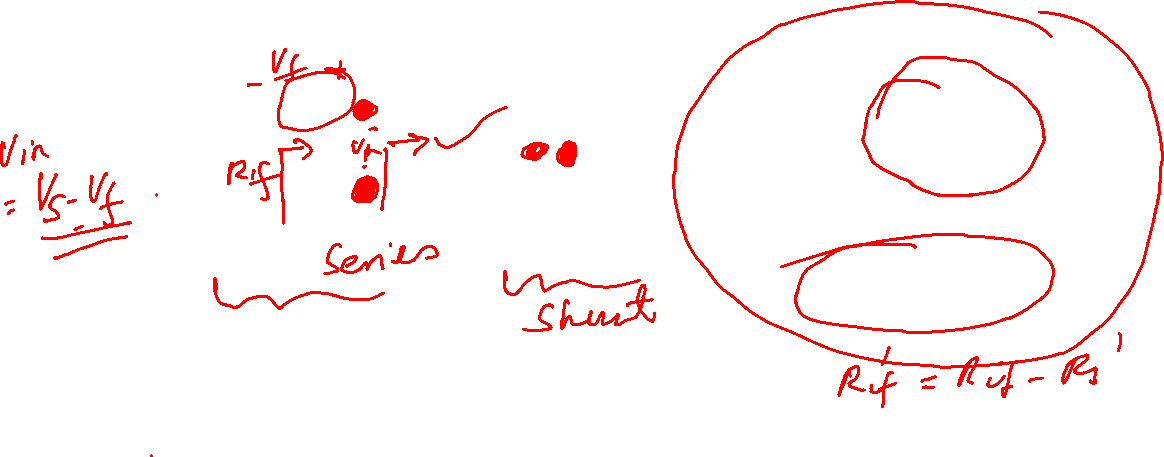 - Vf +
Vin
= Vs - Vf
Rif
Series
Shunt
R'if = Rif - Rs